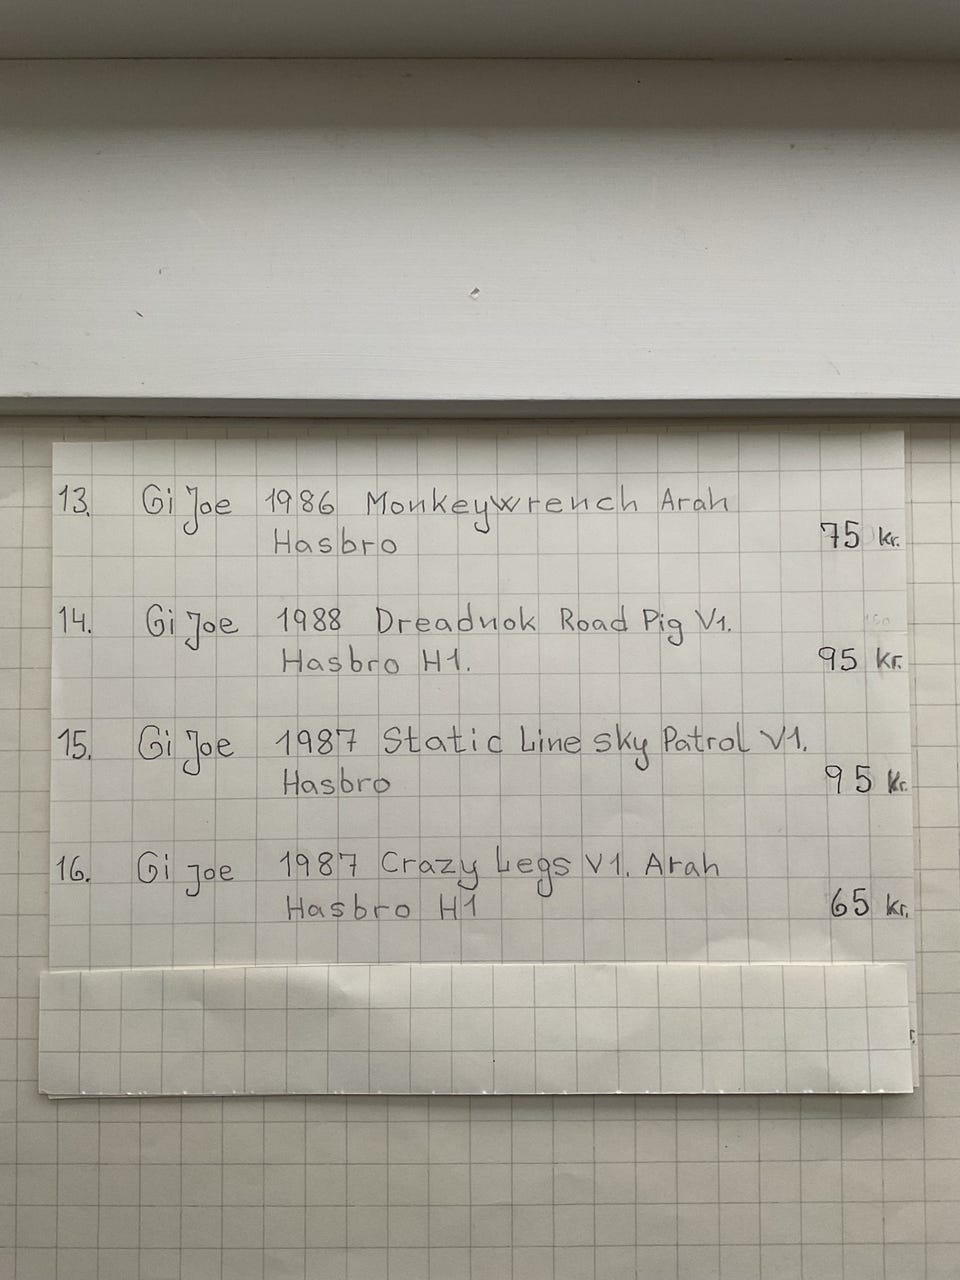 13. Gi Joe 1986 Monkeywrench Arah
Hasbro 75 kr.
14. Gi Joe 1988 Dreadnok Road Pig V1.
Hasbro H1. 95 kr.
15. Gi Joe 1987 Static Line sky Patrol V1.
Hasbro 95 kr.
16. Gi joe 1987 Crazy Legs V1. Arah
Hasbro H1 65 kr.